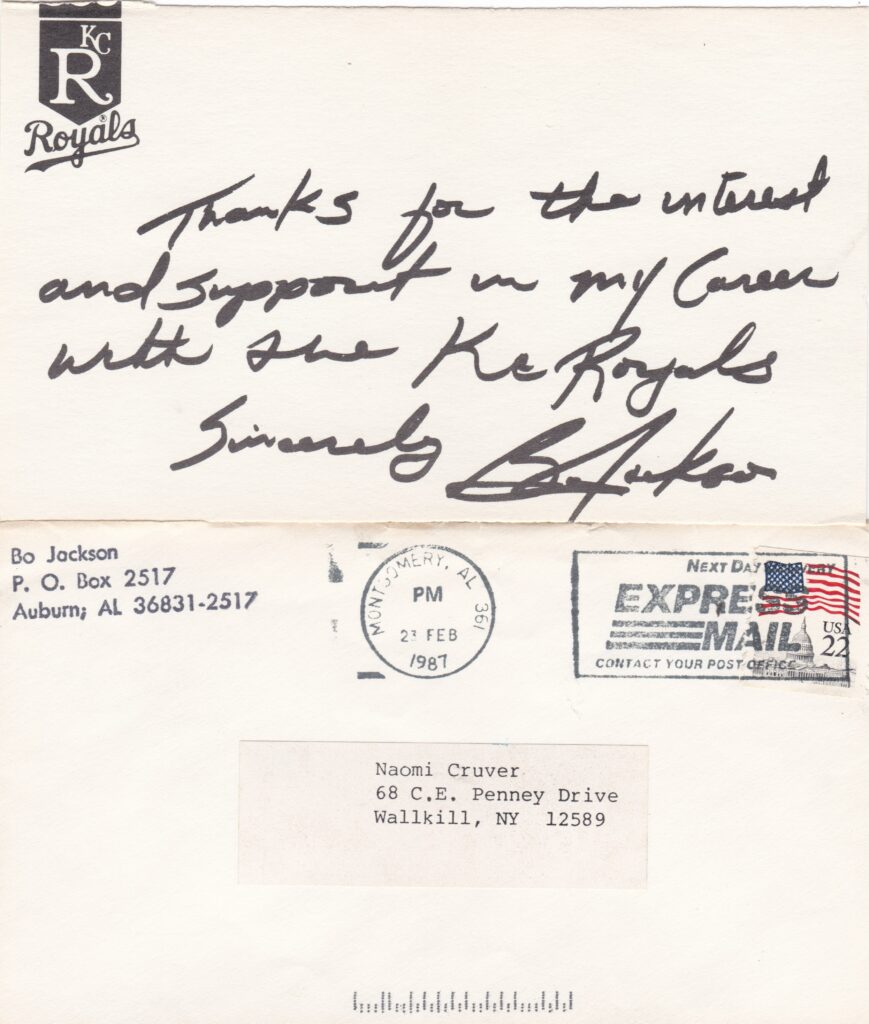 KC
R
Royals®
Thanks for the interest
and support in my Career
with the Kc Royals
Sincerely Bo Jackson
Bo Jackson
P. O. Box 2517
Auburn; AL 36831-2517
MONTGOMERY, AL 361
PM
23 FEB
1987
NEXT DAY DELIVERY
EXPRESS
MAIL
CONTACT YOUR POST OFFICE
USA
22
Naomi Cruver
68 C.E. Penney Drive
Wallkill, NY 12589